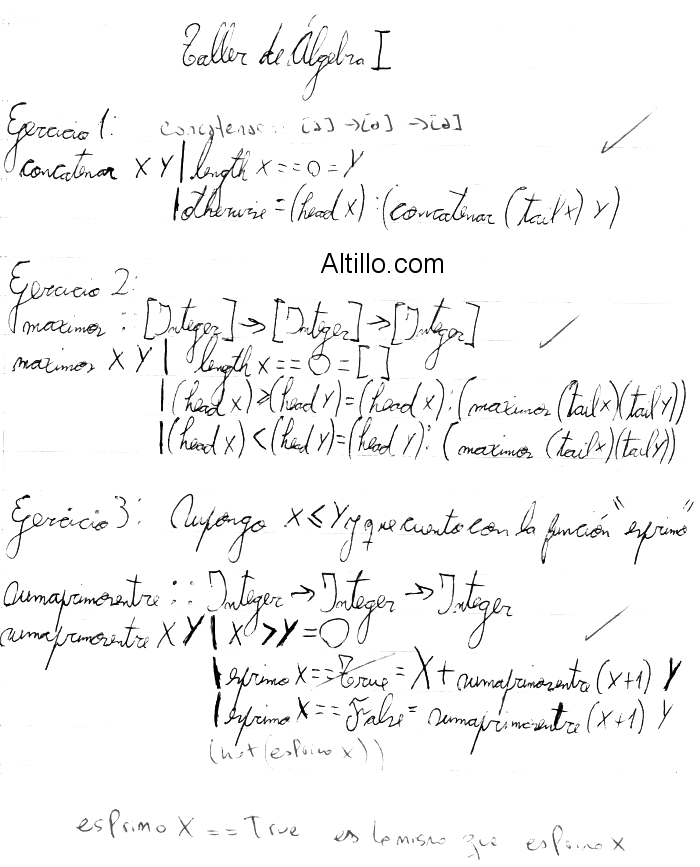 Taller de Álgebra I
Ejercicio 1: concatenar :: [a] → [a] → [a]
concatenar X Y | length X == 0 = Y
| otherwise = (head X) : (concatenar (tail X) Y)
Altillo.com
Ejercicio 2:
maximos :: [Integer] → [Integer] → [Integer]
maximos X Y | length X == 0 = [ ]
| (head X) ≥ (head Y) = (head X) : (maximos (tail X) (tail Y))
| (head X) < (head Y) = (head Y) : (maximos (tail X) (tail Y))
Ejercicio 3: Supongo X ≤ Y y que cuento con la función "esprimo"
sumaprimosentre :: Integer → Integer → Integer
sumaprimosentre X Y | X > Y = 0
| esprimo X == True = X + sumaprimosentre (X+1) Y
| esprimo X == False = sumaprimosentre (X+1) Y
(not (esprimo X))
esprimo X == True es lo mismo que esprimo X